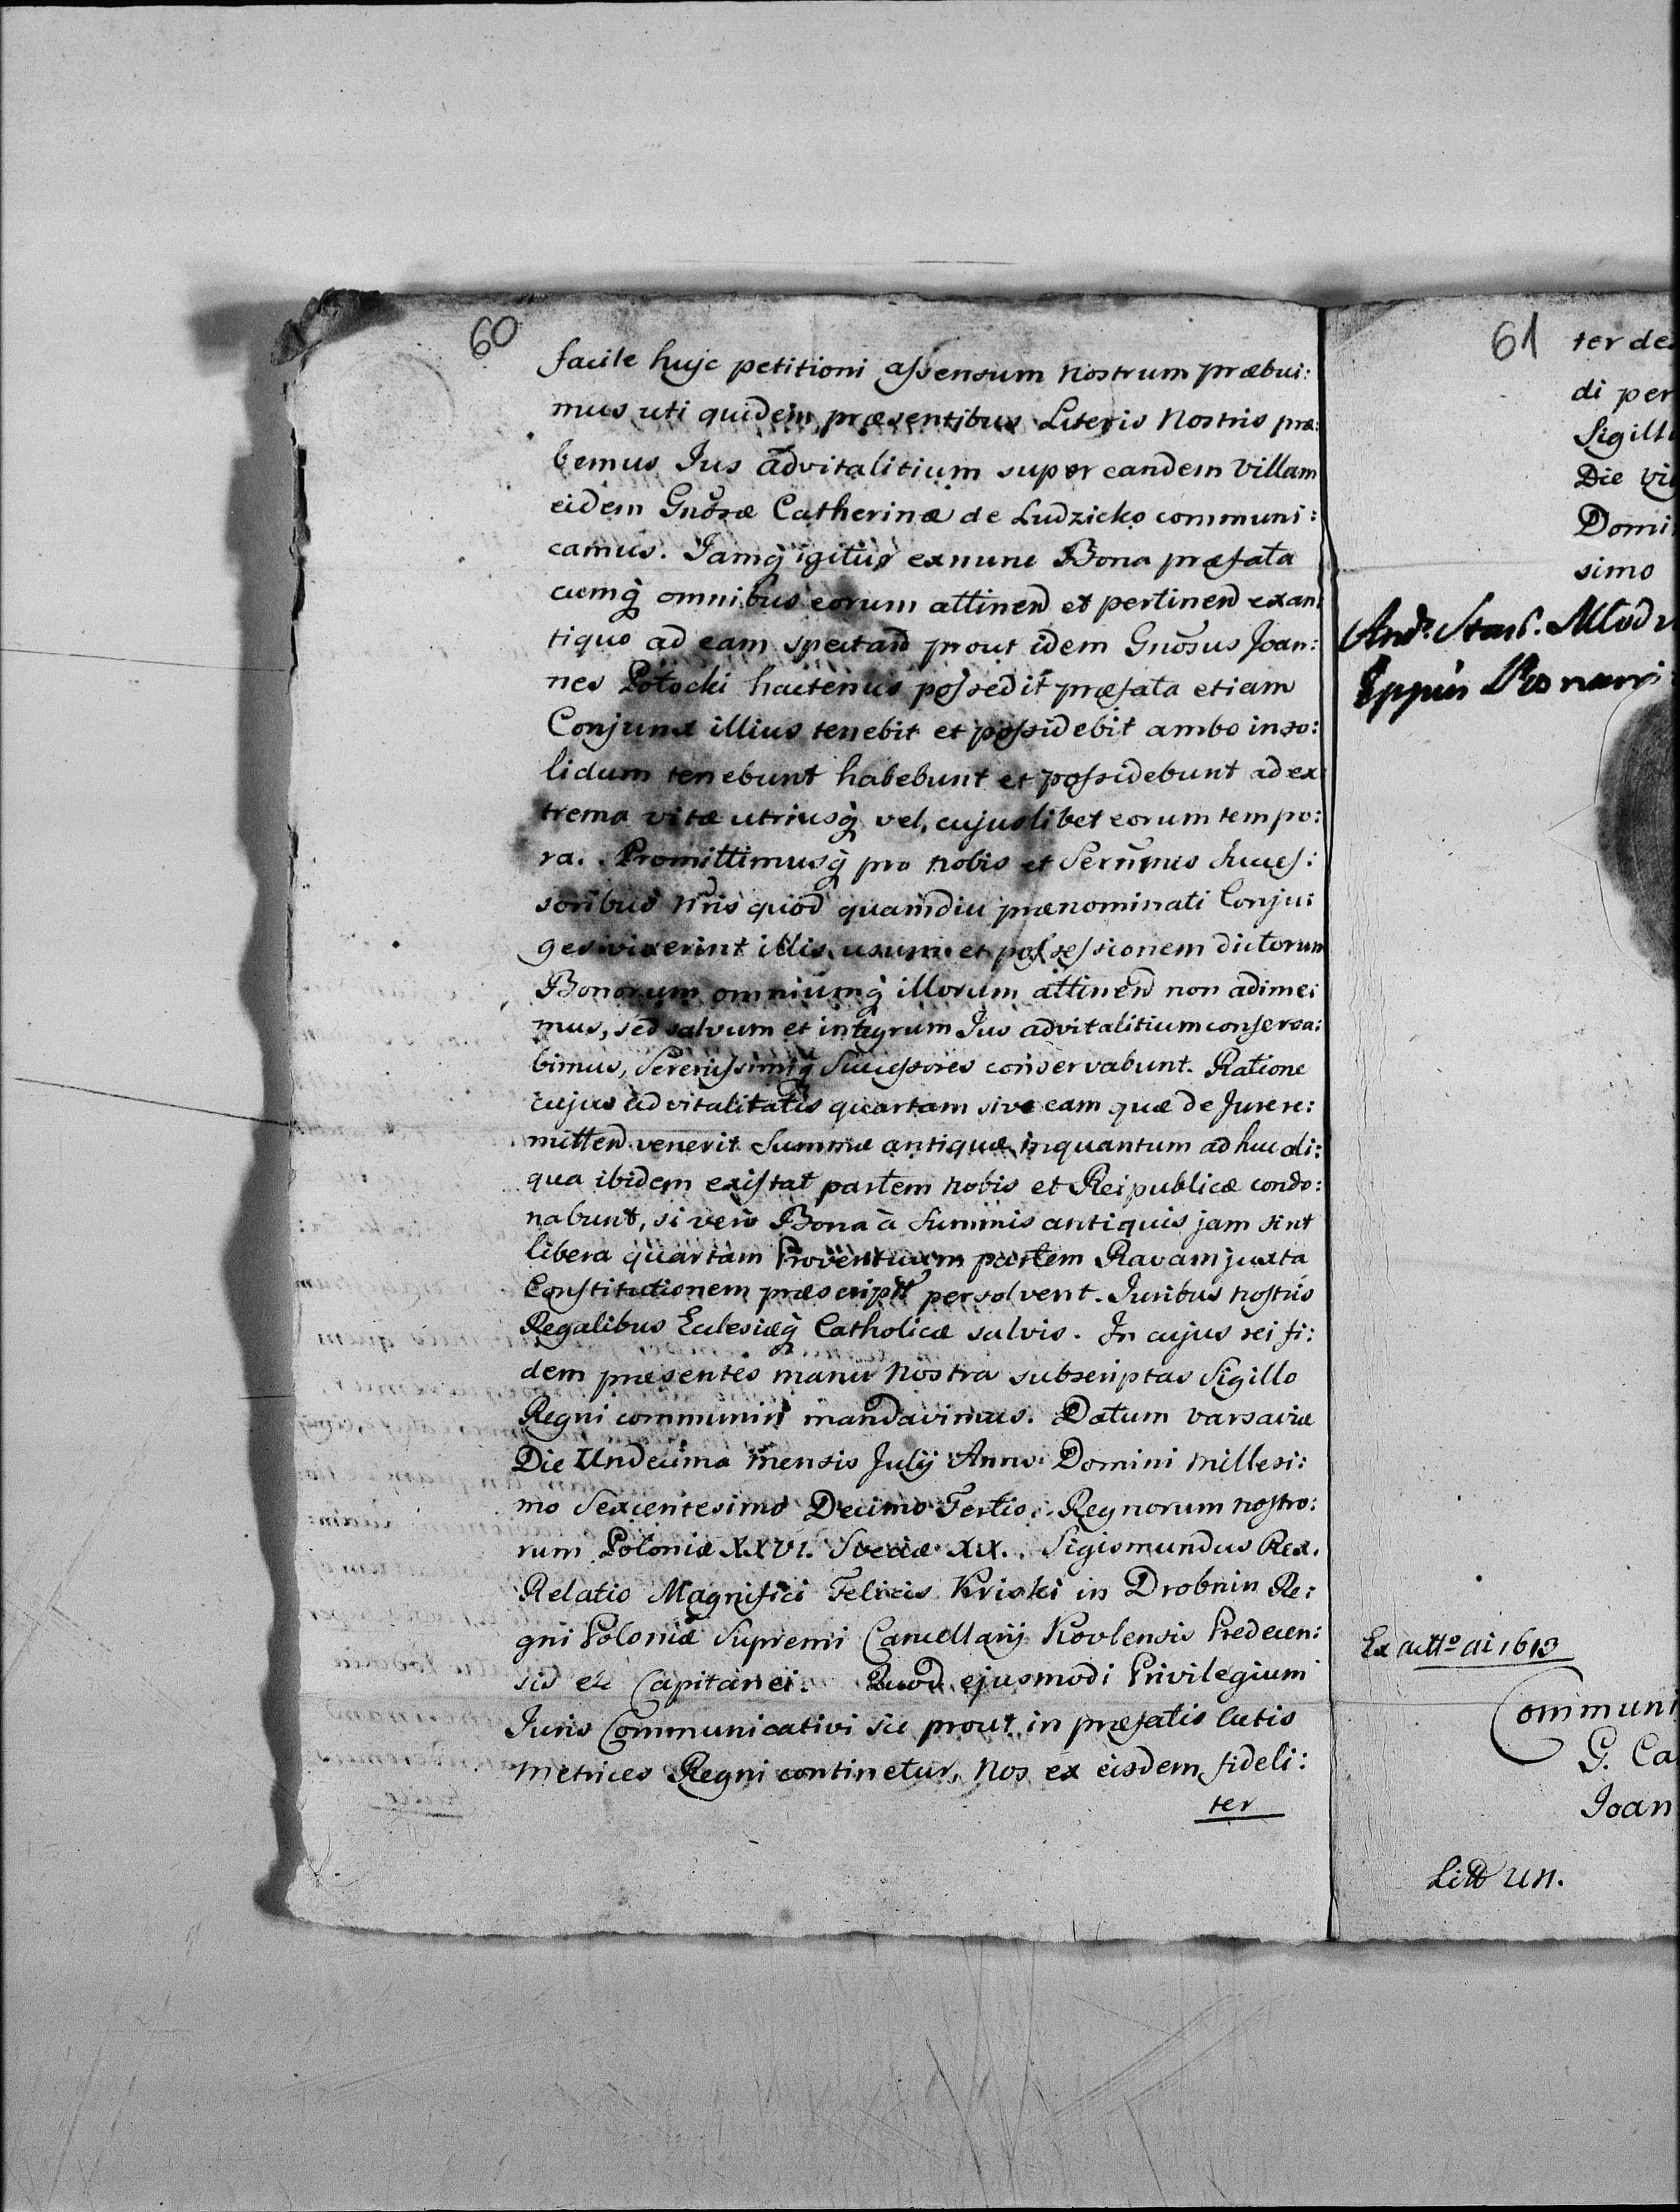 60
facile hujc petitioni assensum nostrum præbui:
mus uti quidem præsentibus Literis Nostris præ:
bemus Jus advitalitium super eandem Villam
eidem Gnosæ Catherinæ de Ludzicko communi:
camus. Jamq igitur exnunc Bona præfata
cumq omnibus eorum attinen et pertinen exan
tiquo ad eam spectan prout idem Gnosus Joan:
nes Potocki hactenus possedit præfata etiam
Conjunx illius tenebit et possidebit ambo inso:
lidum tenebunt habebunt et possidebunt ad ex:
trema vitæ utriusq vel cujuslibet eorum tempo:
ra. Promittimusq pro nobis et Sernmis Succes:
soribus Nris quod quamdiu prænominati Conju:
ges vixerint illis usum et possessionem dictorum
Bonorum omniumq illorum attinen non adime:
mus, sed salvum et integrum Jus advitalitium conserva:
bimus, Serenissimiq Successores conservabunt. Ratione
cujus advitalitatis quartam sive eam quæ de Jure re:
mitten venerit Summæ antiquæ inquantum adhuc ali:
qua ibidem existat partem nobis et Reipublicæ condo:
nabunt, si vero Bona à Summis antiquis jam sint
libera quartam Proventuum partem Ravam juxta
Constitutionem præscript persolvent. Juribus nostris
Regalibus Eclesiæq Catholicæ salvis. In cujus rei fi:
dem præsentes manu Nostra subscriptas Sigillo
Regni communiri mandavimus. Datum Varsaviæ
Die Undecima mensis Julij Anno Domini Millesi:
mo Sexcentesimo Decimo Tertio. Regnorum nostro:
rum Poloniæ XXVI. Sveciæ XIX. Sigismundus Rex.
Relatio Magnifici Felicis Kriski in Drobnin Re:
gni Poloniæ Supremi Cancellarij Kovlensis Predecen:
sis etc Capitanei. Quod ejusmodi Privilegium
Juris Communicativi sic prout in præfatis Actis
Metrices Regni continetur, Nos ex eisdem fideli:
ter
61
ter de
di per
Sigill
Die Vi
Domi
simo
Ex actto ai 1613
Communi
G. Ca
Joan